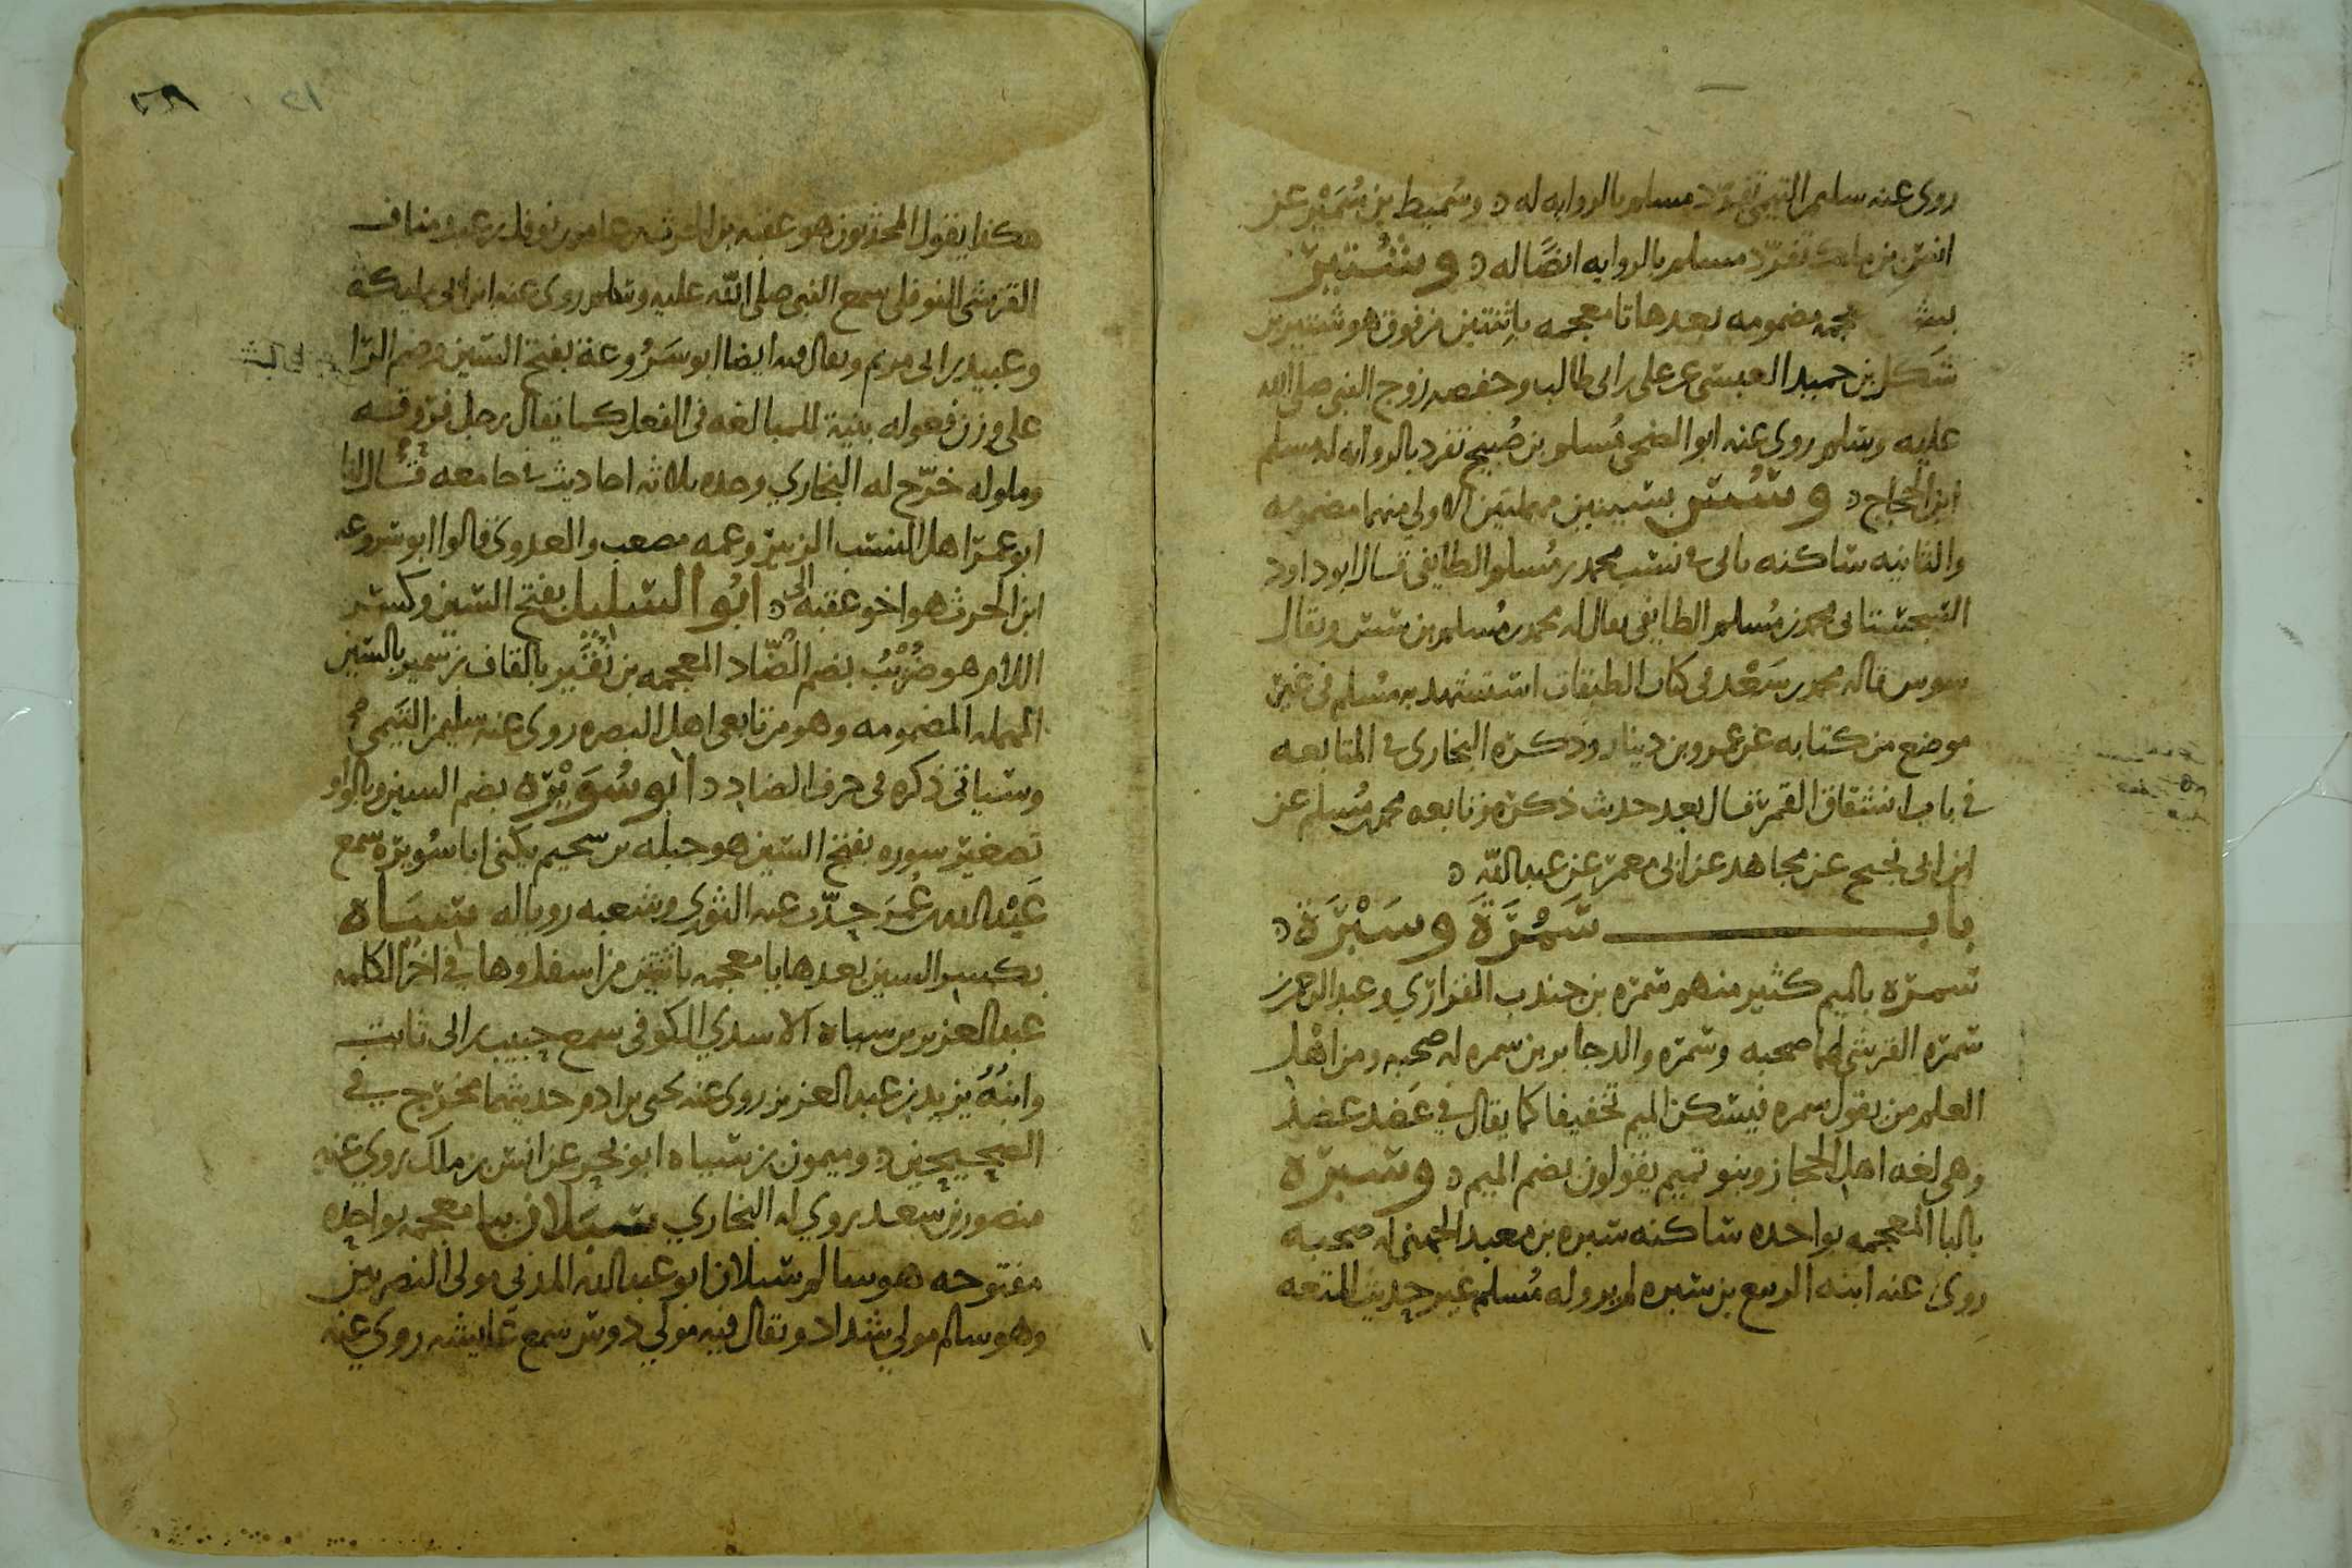 روى عنه سليمن التيمي تفرد مسلم بالروايه له ٥ وسُميط بن سُمَيْر عن
انس بن ملك تفرّد مسلم بالروايه ايضًا له ٥ وشُتَيْر
بشين معجمه مضمومه بعدها تا معجمه باثنتين من فوق هو شتير بن
شَكَل بن حميد العبسي عن علي بن ابى طالب وحفصه زوج النبي صلى الله
عليه وسلم روى عنه ابو الضحى مُسلم بن صُبيح تفرد بالروايه له مسلم
ابن الحجاج ٥ وسُسْن بسينين مهملتين الاولي منهما مضمومه
والثانيه ساكنه ياتى فى نسب محمد بن مُسلم الطايفى قال ابو داود
السجستانى محمد بن مُسلم الطايفى يقال له محمد بن مُسلم بن سسن ويقال
سوس قاله محمد بن سَعْد فى كتاب الطبقات استشهد به مسلم فى غير
موضع من كتابه عن عمرو بن دينار وذكره البخارى فى المتابعه
في باب انشقاق القمر قال بعد حديث ذكره وتابعه محمد بن مُسلم عن
ابن ابى نجيح عن مجاهد عن ابى معمر عن عبد الله ٥
باب سَمُرَة وسَبْرَة ٥
سمرة بالميم كثير منهم سمره بن جندب الفزاري وعبد الرحمن بن
سمره القرشى لهما صحبه وسمره والد جابر بن سمره له صحبه ومن اهل
العلم من يقول سمره فيسكن الميم تخفيفا كما يقال في عَضد عضد
وهى لغه اهل الحجاز وبنو تميم يقولون بضم الميم ٥ وسبرة
بالبا المعجمه بواحده ساكنه سبره بن معبد الجهنى له صحبه
روى عنه ابنه الربيع بن سبره لم يرو له مُسلم غير حديث المتعه
هكذا يقول المحدثون هو عقبه بن الحرث بن عامر بن نوفل بن عبد مناف
القرشى النوفلى سمع النبي صلى الله عليه وسلم روى عنه ابن ابى مليكة
وعبيد بن ابى مريم ويقال فيه ايضا ابو سَرُوعة بفتح السين وضم الرا
على وزن فعوله بنية للمبالغه فى الفعل كما يقال رجل فروقه
وملوله خرّج له البخاري وحده ثلاثه احاديث فى جامعه قال لنا
ابو عمر اهل النسب الزبير وعمه مصعب والعدوى قالوا ابو سروعه
ابن الحرث هو اخو عقبه ٥ ابُو السَليل بفتح السين وكسر
اللام هو ضُرَيْبُ بضم الضّاد المعجمه بن نُقَيْر بالقاف بن سمير بالسين
المهمله المضمومه وهو من تابعى اهل البصره روى عنه سليمن التيمي
وسياتى ذكره فى حرف الضاد ٥ ابو سُوَيْرَة بضم السين وبالواو
تصغير سوره بفتح السين هو جبله بن سحيم يكنى ابا سُويرَة سمع
عَبْد الله بن عُمَر حدّث عنه الثوري وشعبه رويا له سيَاه
بكسر السين بعدها يا معجمه باثنتين من اسفل وها في اخر الكلمه
عبد العزيز بن سياه الاسدي الكوفى سمع حبيب بن ابى ثابت
وابنُهُ يزيد بن عبد العزيز روى عنه يحيى بن ادم حديثهما مخرّج في
الصحيحين ٥ وميمون بن سياه ابو بحر عن انس بن ملك روي عنه
منصور بن سعد روي له البخاري سَبَلان ببا معجمه بواحده
مفتوحه هو سالم سبلان ابو عبد الله المدني مولى النصريين
وهو سالم مولي شداد ويقال فيه مولي دوس سمع عايشه روي عنه